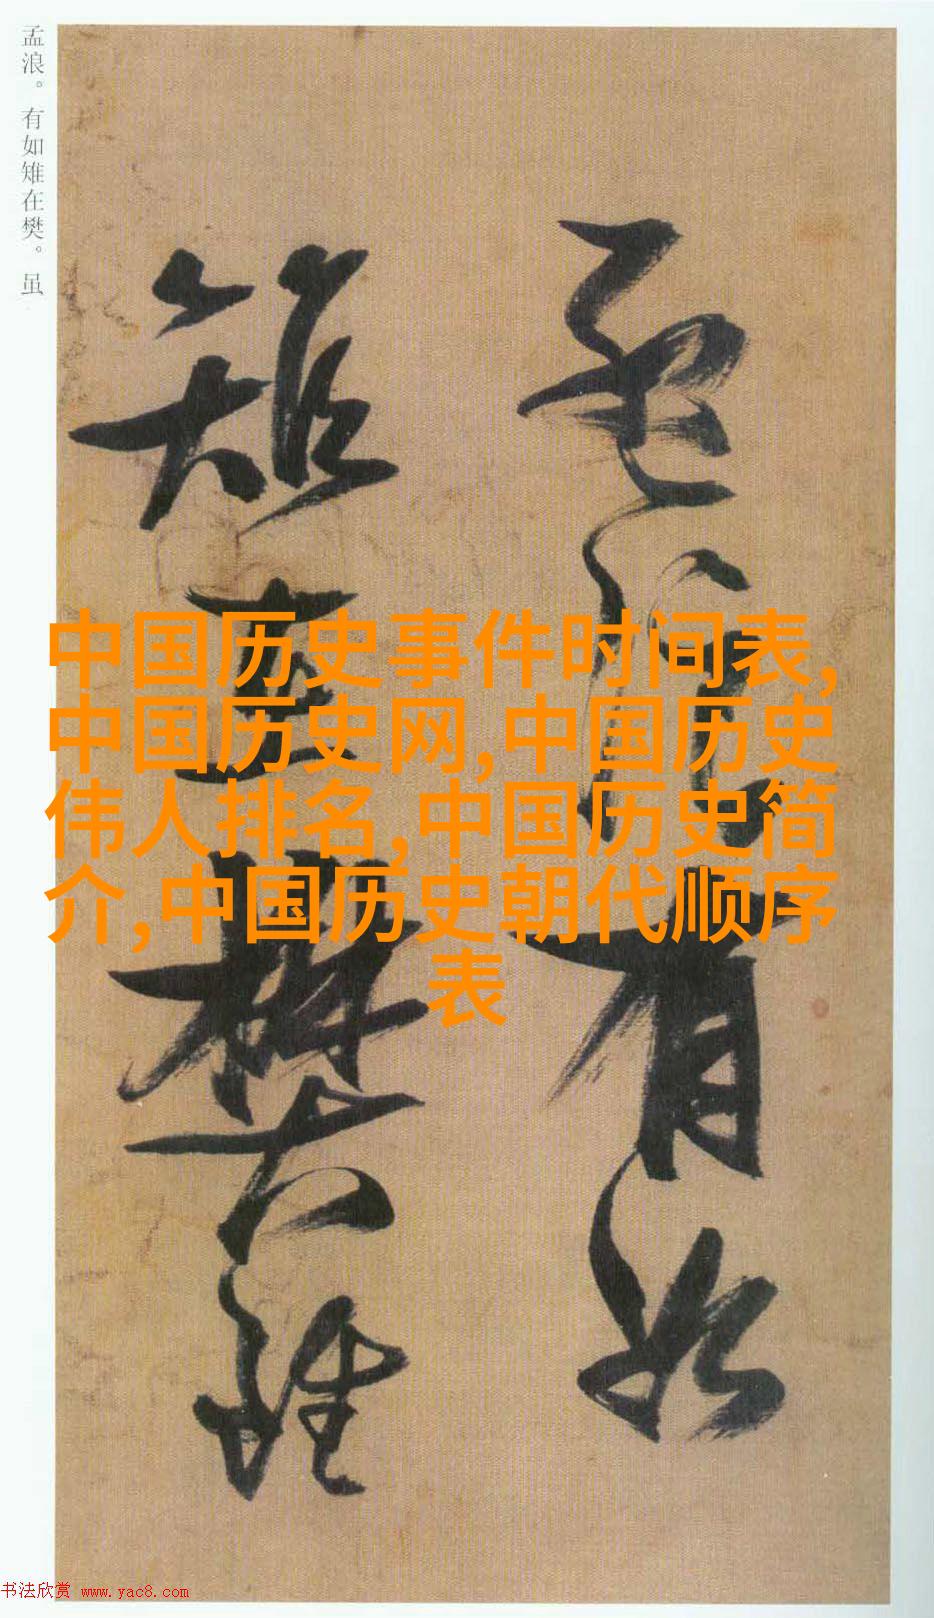 孟浪。有如雉在樊。虽
孟浪有如
雉在樊虽
中国历史事件时间表,
中国历史网,中国历史
伟人排名,中国历史简
介,中国历史朝代顺序
表
书法欣赏 www.yac8.com